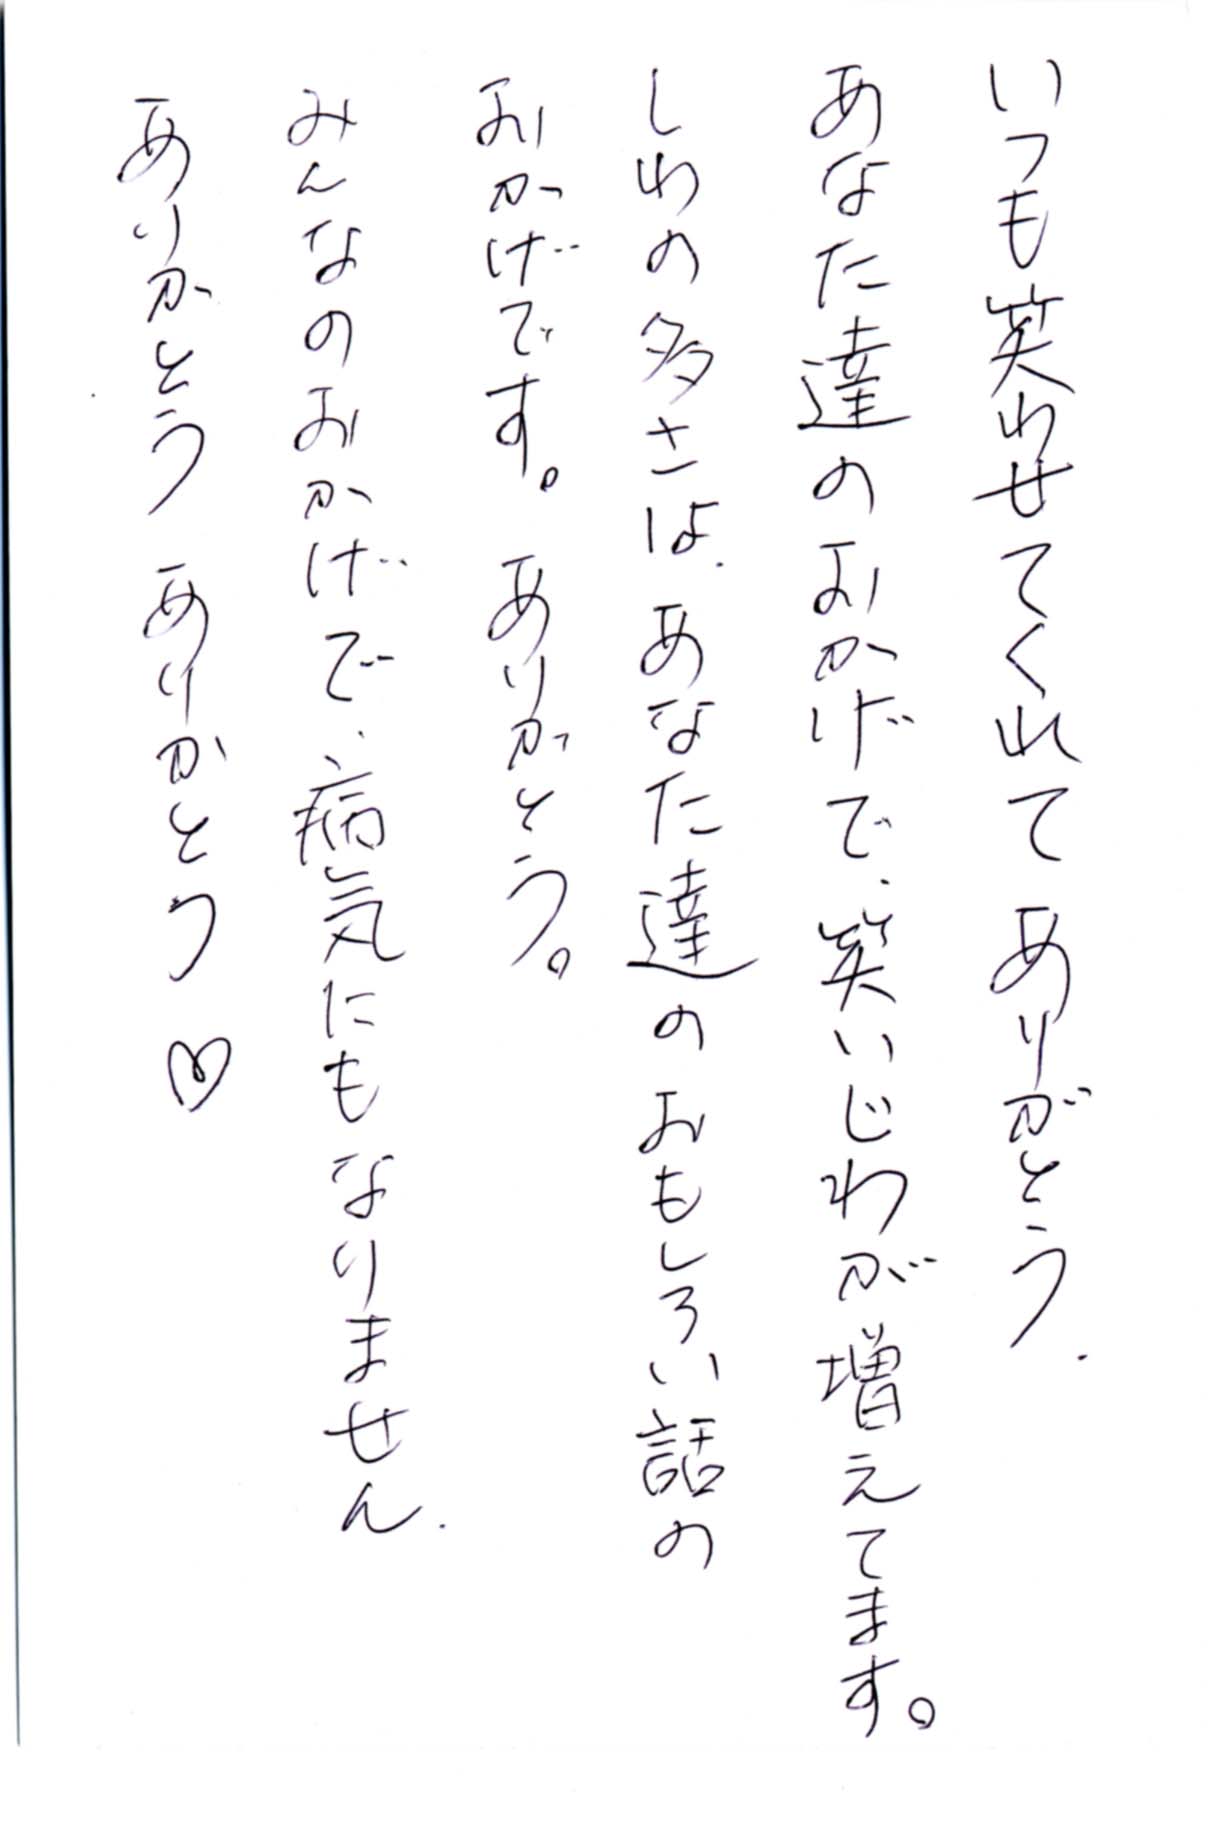 いつも笑わせてくれて ありがとう.
あなた達のおかげで、笑いじわが増えてます。
しわの多さは、あなた達のおもしろい話の
おかげです。ありがとう。
みんなのおかげで、病気にもなりません.
ありがとう ありがとう ♡